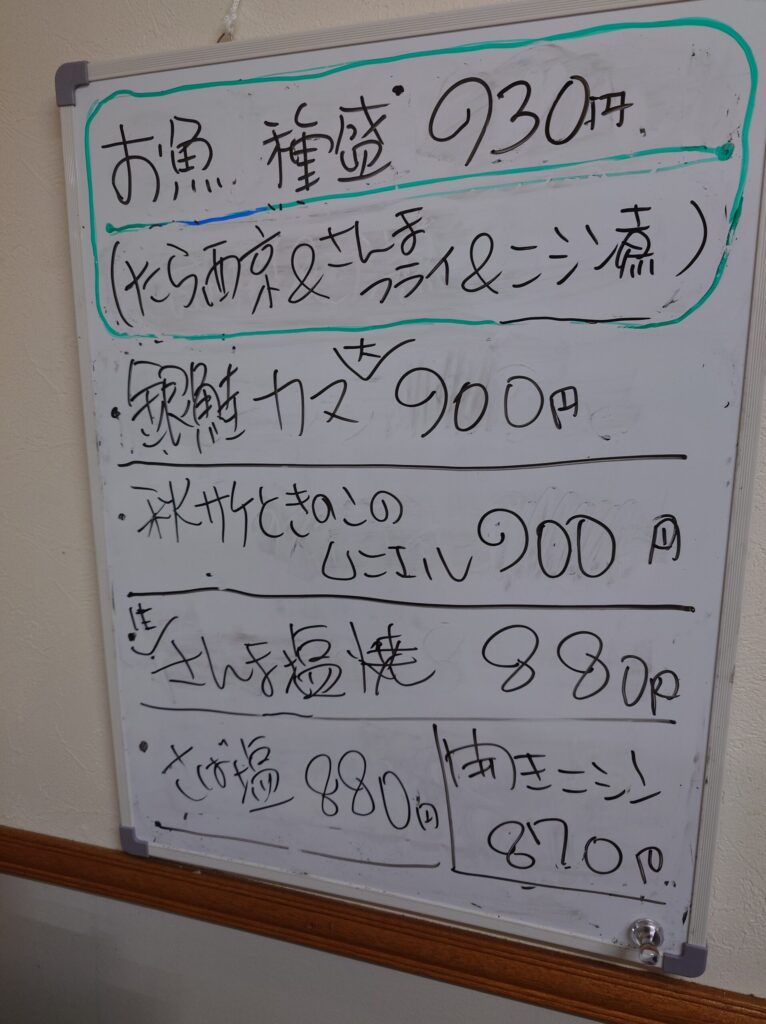 お魚 種盛 930円
(たら西京&さんまフライ&ニシン煮)
・銀鮭カマ 大 900円
・秋サケときのこの
ムニエル 900円
・生 さんま塩焼 880円
・さば塩 880円
開きニシン
870円